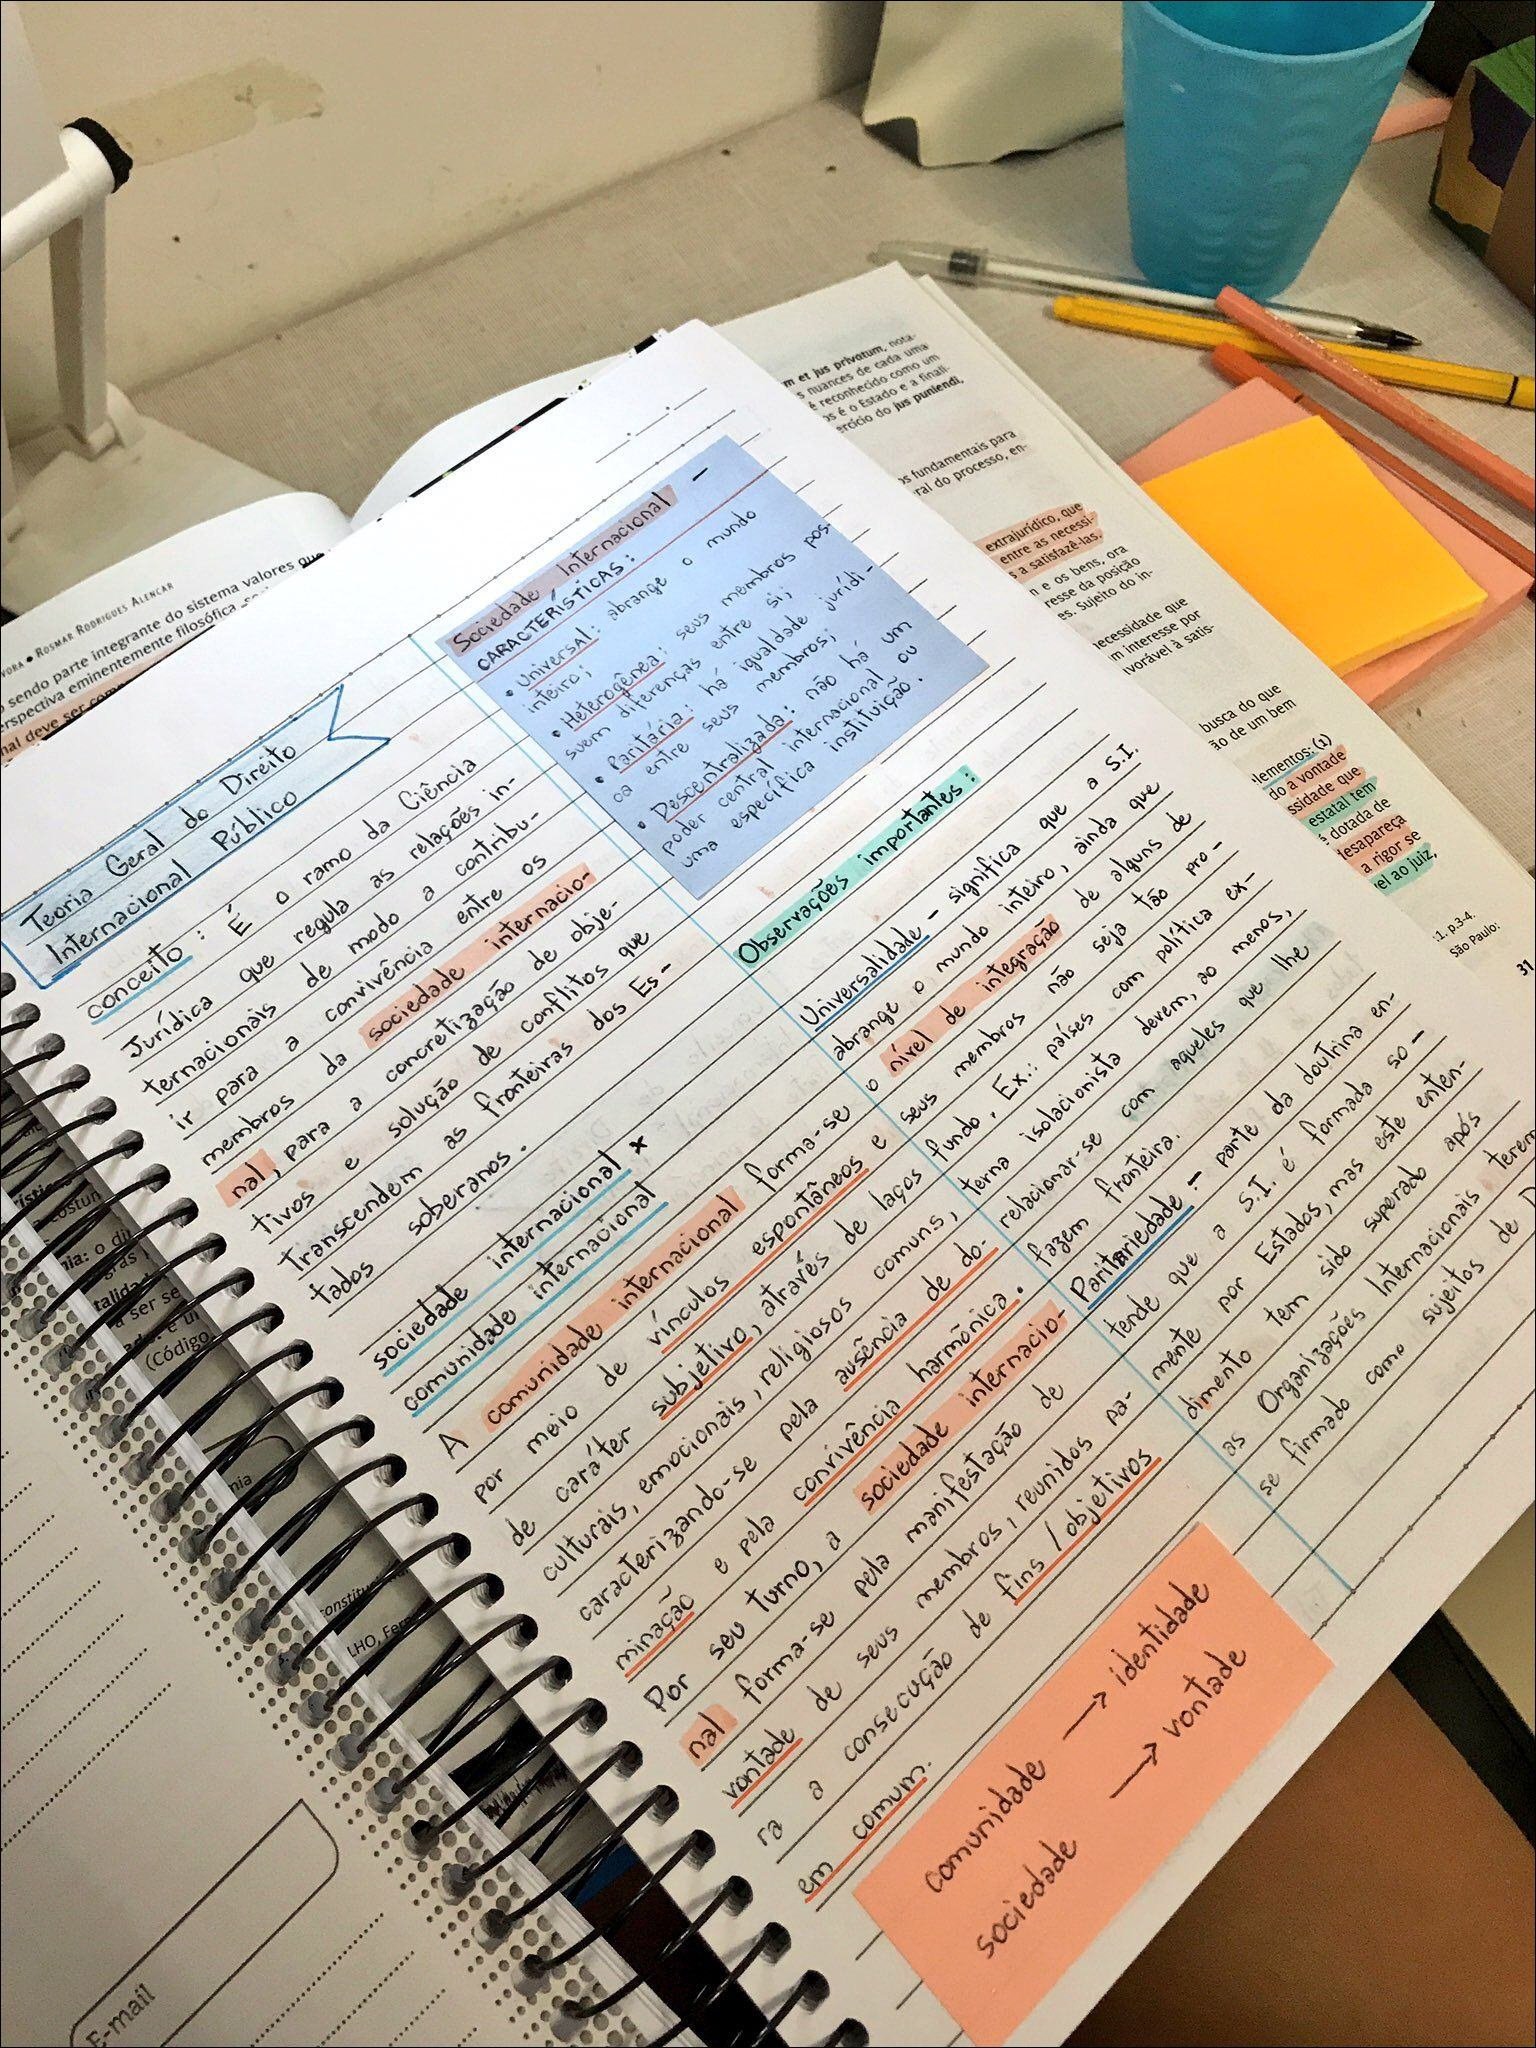 Teoria Geral do Direito
Internacional Público
conceito: É o ramo da Ciência
Jurídica que regula as relações in-
ternacionais de modo a contribu-
ir para a convivência entre os
membros da sociedade internacio-
nal, para a concretização de obje-
tivos e solução de conflitos que
transcendem as fronteiras dos Es-
tados soberanos.
sociedade internacional x
comunidade internacional
A comunidade internacional forma-se
por meio de vínculos espontâneos e
de caráter subjetivo, através de laços
culturais, emocionais, religiosos comuns,
caracterizando-se pela ausência de do-
minação e pela convivência harmônica.
Por seu turno, a sociedade internacio-
nal forma-se pela manifestação de
vontade de seus membros, reunidos pa-
ra a consecução de fins/objetivos
em comum.
Sociedade Internacional -
CARACTERÍSTICAS:
• Universal: abrange o mundo
inteiro;
• Heterogênea: seus membros pos-
suem diferenças entre si;
• Paritária: há igualdade jurídi-
ca entre seus membros;
• Descentralizada: não há um
poder central internacional ou
uma específica instituição.
Observações importantes:
Universalidade - significa que a S.I.
abrange o mundo inteiro, ainda que
o nível de integração de alguns de
seus membros não seja tão pro-
fundo. Ex.: países com política ex-
terna isolacionista devem, ao menos,
relacionar-se com aqueles que lhe
fazem fronteira.
Paritariedade - parte da doutrina en-
tende que a S.I. é formada so-
mente por Estados, mas este enten-
dimento tem sido superado após
as Organizações Internacionais terem
se firmado como sujeitos de
comunidade → identidade
sociedade → vontade
ROSMAR RODRIGUES ALENCAR
sendo parte integrante do sistema valores que
perspectiva eminentemente filosófica
deve ser
et jus privatum, nota-
nuances de cada uma
é reconhecido como um
é o Estado e a finali-
do jus puniendi,
fundamentais para
do processo, en-
extrajurídico, que
entre as necessi-
a satisfazê-las.
e os bens, ora
da posição
Sujeito do in-
necessidade que
interesse por
à satis-
busca do que
de um bem
elementos: (1)
a vontade
que
estatal tem
é dotada de
desapareça
a rigor se
ao juiz,
p.3-4.
São Paulo:
31
(Código
E-mail